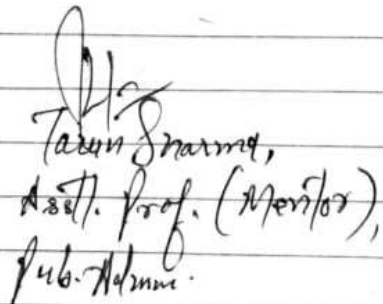 Tarun Sharma,
Asstt. Prof. (Mentor),
Pub. Admn.